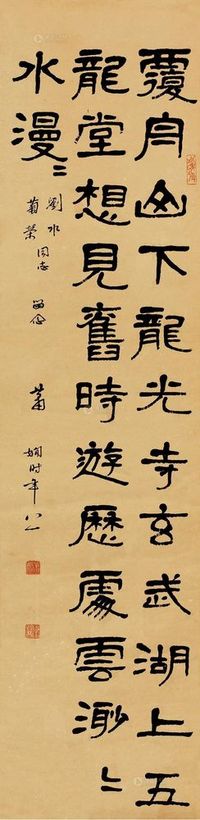 覆舟山下龍光寺玄武湖上五
龍堂想見舊時遊歷處雲渺〻
水漫〻
劉水
菊榮同志 留念
蕭嫻时年八一